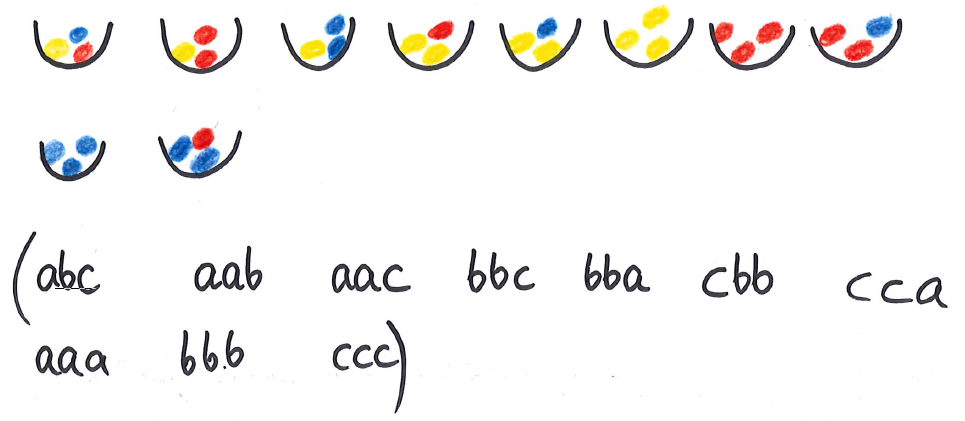 (abc aab aac bbc bba cbb cca
aaa bbb ccc)